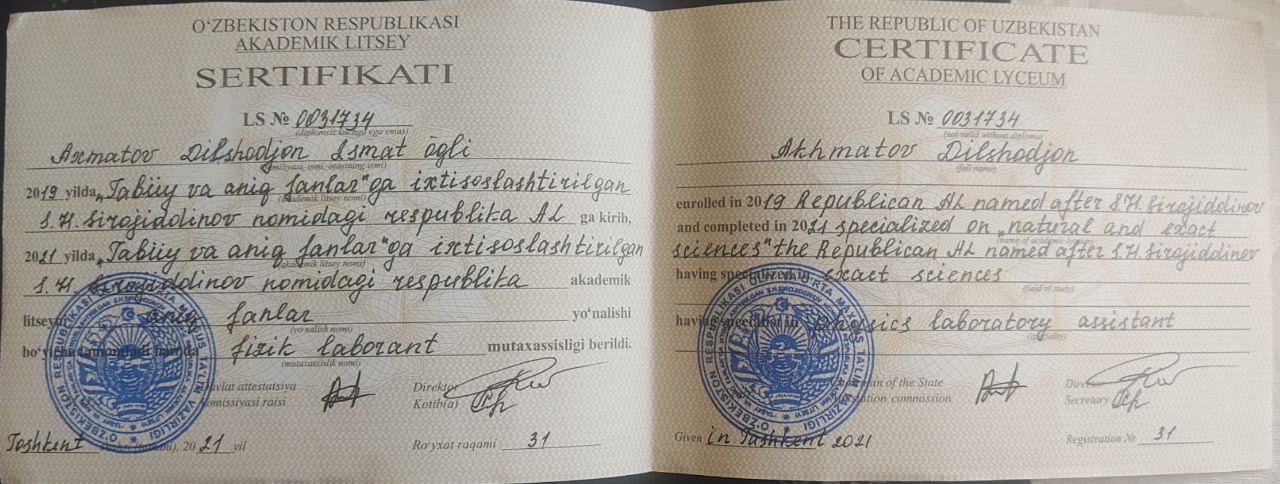 O‘ZBEKISTON RESPUBLIKASI
AKADEMIK LITSEY
SERTIFIKATI
LS № 0031734
(diplomsiz kuchga ega emas)
Axmatov Dilshodjon Ismat ògli
(familiyasi, ismi, otasining ismi)
2019 yilda, „Tabiiy va aniq fanlar"ga ixtisoslashtirilgan
(akademik litsey nomi)
S.H. Sirojiddinov nomidagi respublika AL ga kirib,
2021 yilda, „Tabiiy va aniq fanlar"ga ixtisoslashtirilgan
(akademik litsey nomi)
S.H. Sirojiddinov nomidagi respublika akademik
litseyni aniq fanlar yo‘nalishi
(yo‘nalish nomi)
bo‘yicha tamomladi hamda fizik laborant mutaxassisligi berildi.
(mutaxassislik nomi)
Davlat attestatsiya Direktor
komissiyasi raisi Kotib(a)
Toshkent shahri (tumani), 2021 yil Ro‘yxat raqami 31
THE REPUBLIC OF UZBEKISTAN
CERTIFICATE
OF ACADEMIC LYCEUM
LS № 0031734
(not valid without diploma)
Akhmatov Dilshodjon
(full name)
enrolled in 2019 Republican AL named after S.H. Sirojiddinov
and completed in 2021 specialized on „natural and exact
(name of academic lyceum)
sciences" the Republican AL named after S.H. Sirojiddinov
having specialized in exact sciences
(field of study)
having specialist in physics laboratory assistant
(speciality)
Chairman of the State Director
Attestation commission Secretary
Given in Tashkent 2021 Registration № 31